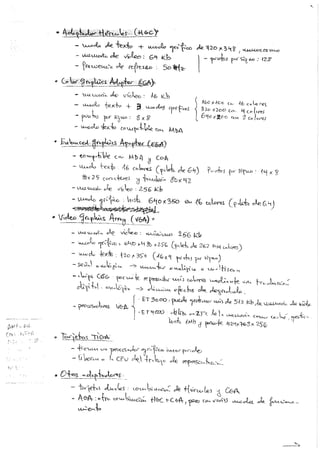 • Adaptador Hércules: (HGC)
- modo de texto + modo gráfico de 720 x 348, monocromo
- memoria de video: 64 Kb
- frecuencia de refresco: 50 Hz
- puntos por signo: 128
• Color Graphics Adapter
- memoria de video: 16 Kb
- modo texto + 3 modos gráficos
160 x 200 en 16 colores
320 x 200 en 4 colores
640 x 200 en 2 colores
- puntos por signo: 8 x 8
- modo texto compatible con MDA
• Enhanced Graphics Adapter (EGA):
- compatible con MDA y CGA
- modo texto 16 colores (paleta de 64) Puntos por signo: 14 x 8
80 x 25 caracteres y también 80 x 43
- memoria de video: 256 Kb
- modo gráfico: hasta 640 x 350 en 16 colores (paleta de 64)
• Video Graphics Array (VGA)
- memoria de video: mínimo 256 Kb
- modo gráfico: 640 x 480 x 256 (paleta de 262 mil colores)
- modo texto: 720 x 35 (16 x 9 puntos por signo)
- señal analógica → monitor analógico o multiscan
- chip CEG permite representar más colores mediante
digital - analógico → elimina efectos de degradado
- procesadores VGA
- ET 3000: puede gestionar más de 512 Kb de memoria de video
- ET 4000 25% de la memoria
hasta 1 Mb y permite 1024 x 768 x 256
• Tarjetas TIGA:
- tienen un procesador gráfico incorporado
- liberan a la CPU del trabajo de representación
• Otros adaptadores:
- tarjetas duales: combinación de Hércules y CGA
- AGA: otra combinación HGC + CGA, pero con varios modos de funciona-
miento